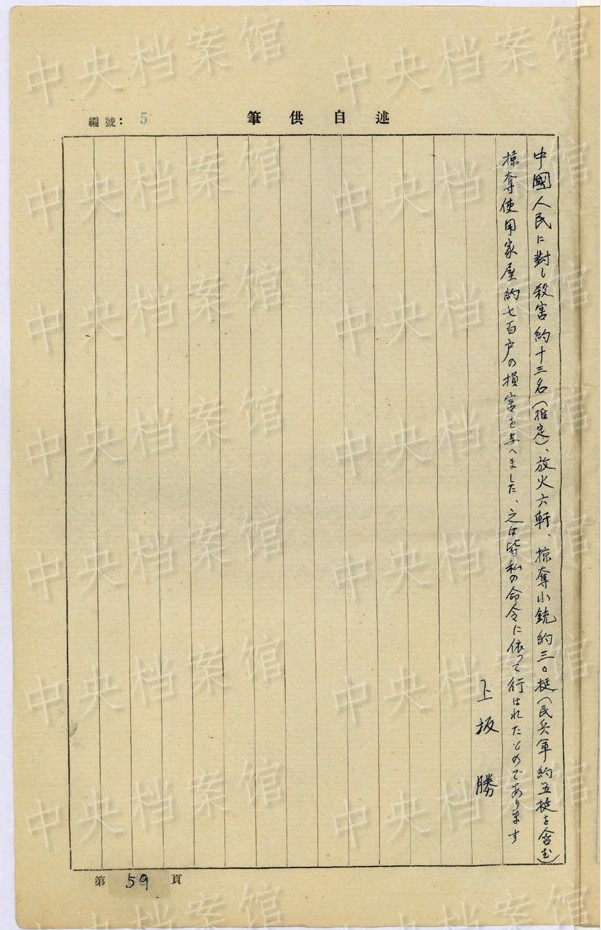 編號：5
筆供自述
中國人民に對し殺害約十三名(推定)、放火六軒、掠奪小銃約三〇挺(民兵軍約五挺を含む)
掠奪使用家屋約七百戸の損害を与へました、之は皆私の命令に依って行はれたものであります
上坂勝
第59頁
中央档案馆